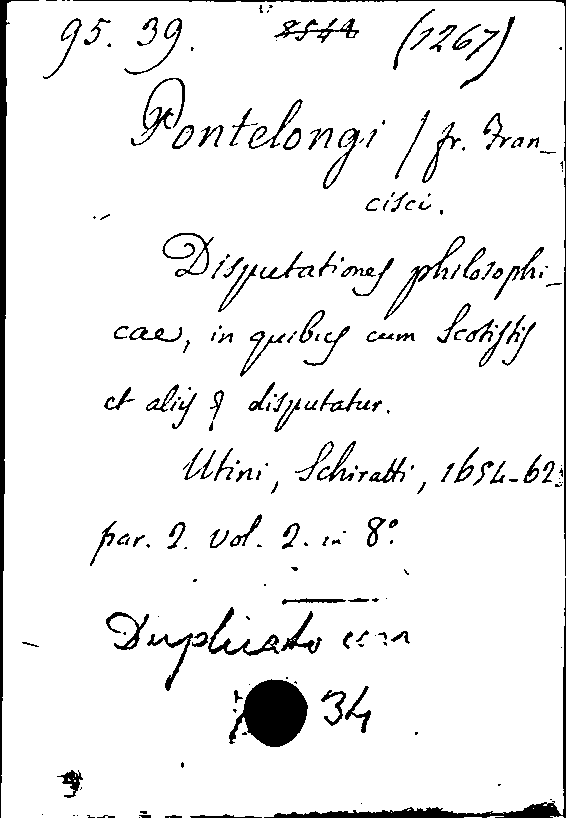 95. 39. 8544 (1267)
Pontelongi / fr. Fran_
cisci.
Disputationes philosophi_
cae, in quibus cum Scotistis
et aliis disputatur.
Utini, Schiratti, 1654-62.
par. 2. vol. 2. in 8º.
Duplicato con
34